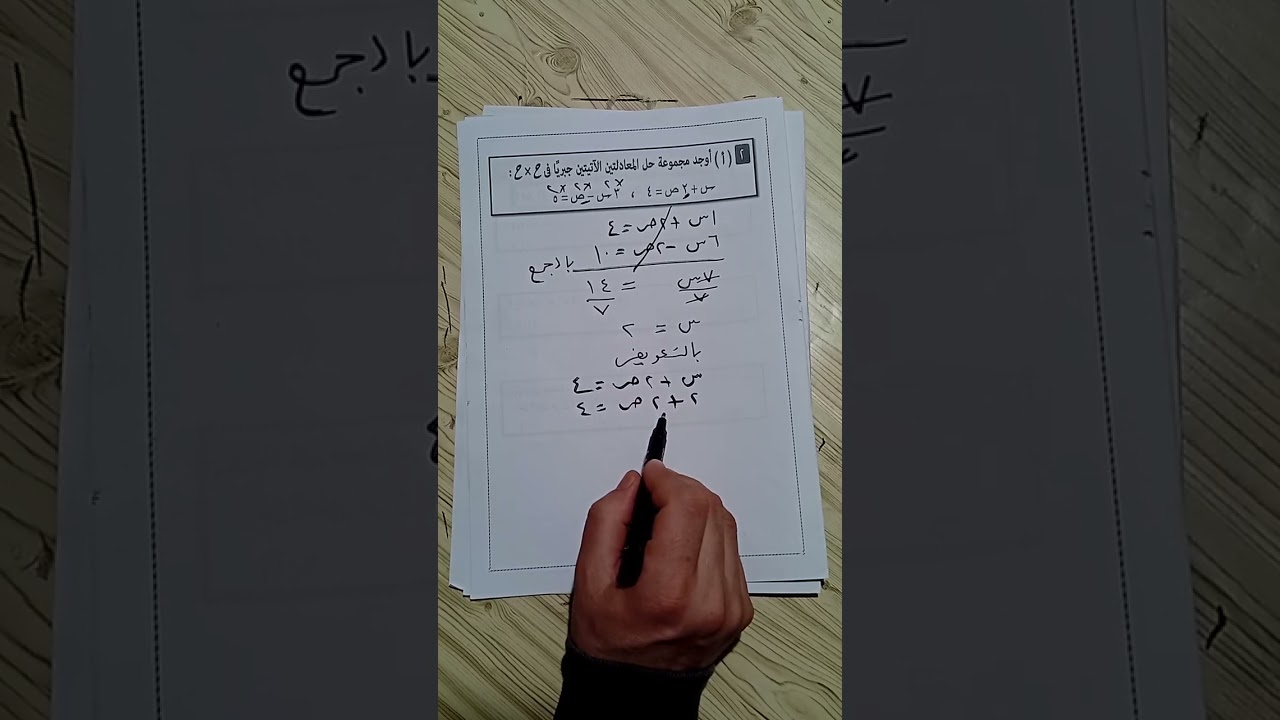 ٢ (أ) أوجد مجموعة حل المعادلتين الآتيتين جبريًا فى ح × ح :
س + ٢ ص = ٤ ، ٣ س − ص = ٥
×٢ ×٢ ×٢
١س + ٢ص = ٤
٦س − ٢ص = ١٠ بالجمع
٧س/٧ = ١٤/٧
س = ٢
بالتعويض
س + ٢ص = ٤
٢ + ٢ص = ٤